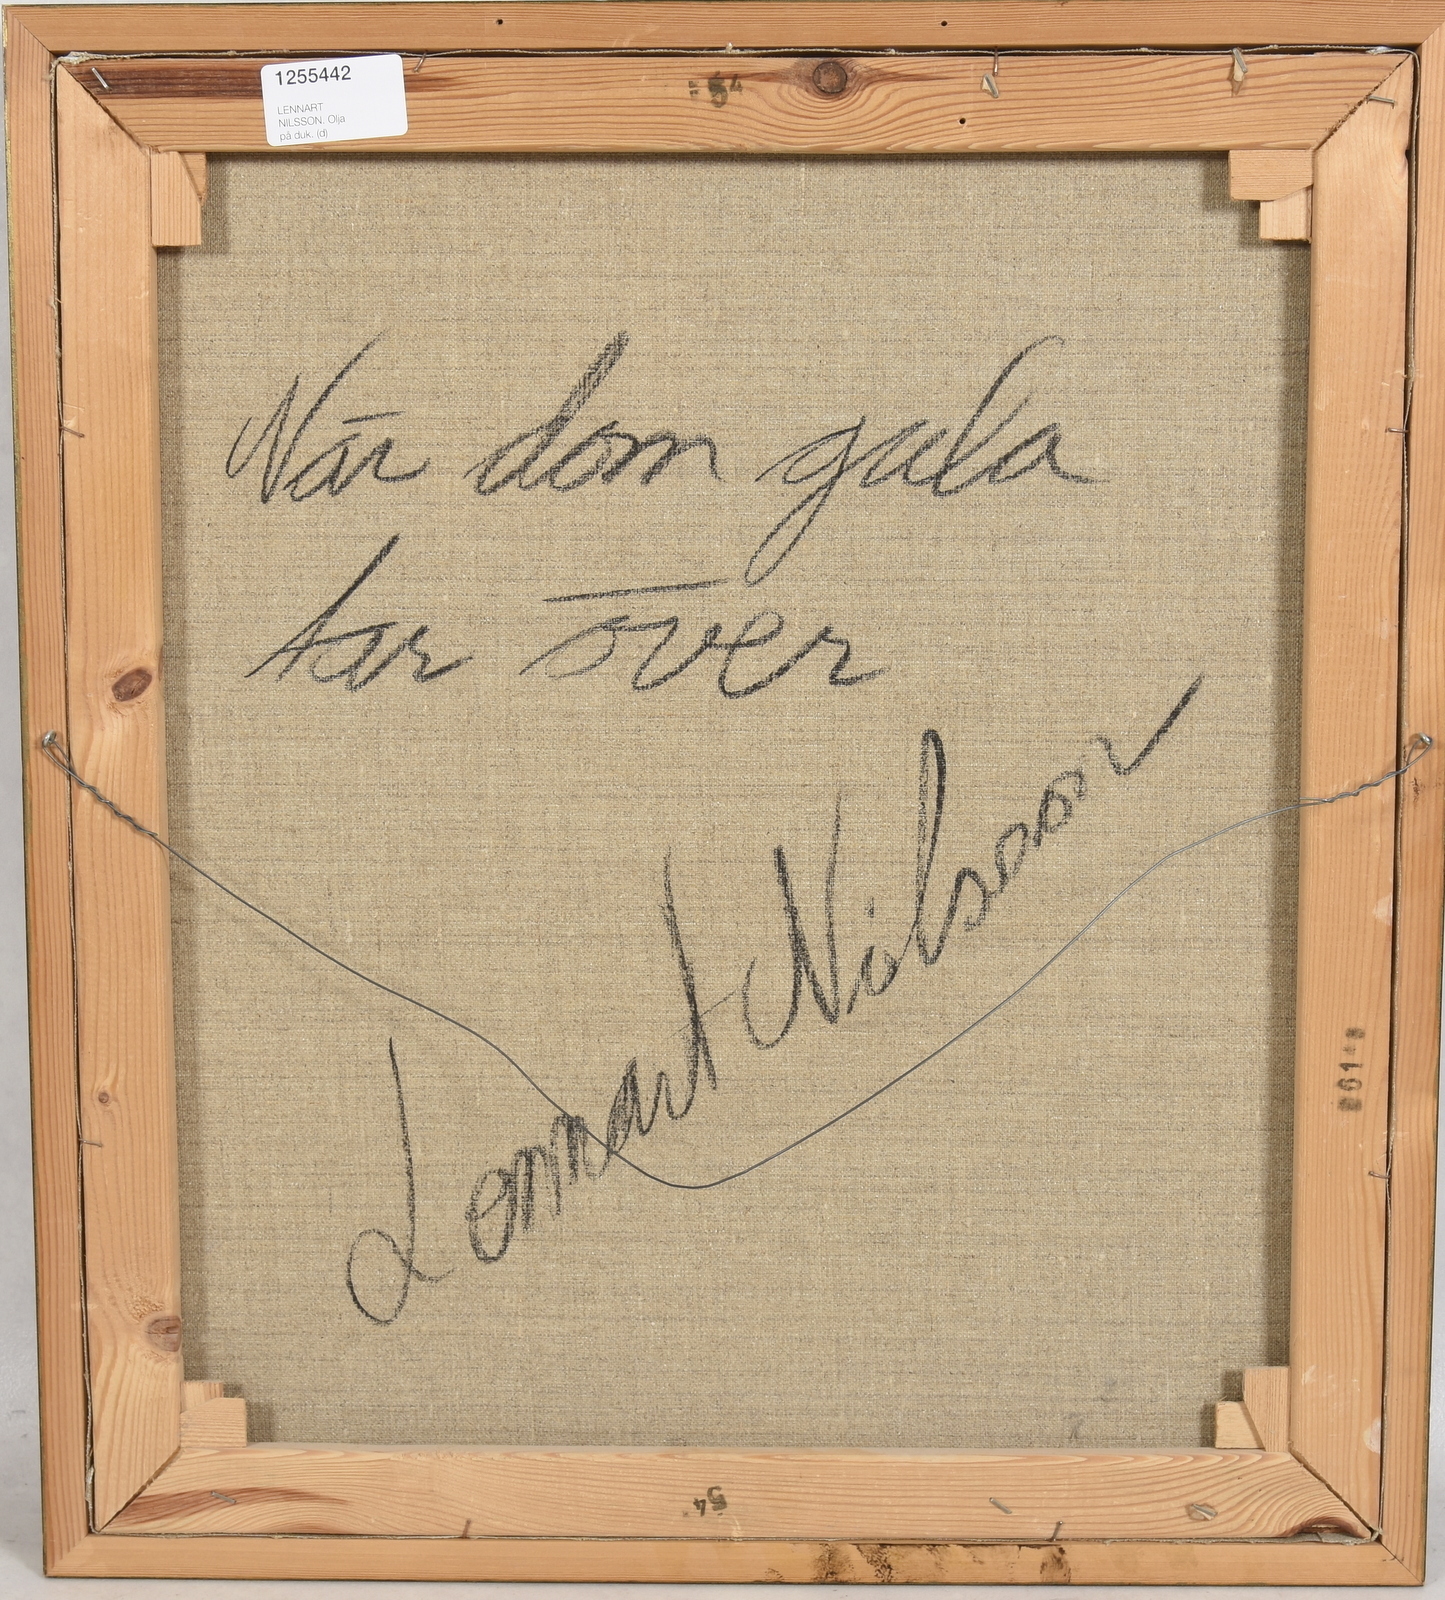 1255442
LENNART
NILSSON. Olja
på duk. (d)
54
När dom gula
tar över
Lennart Nilsson
54